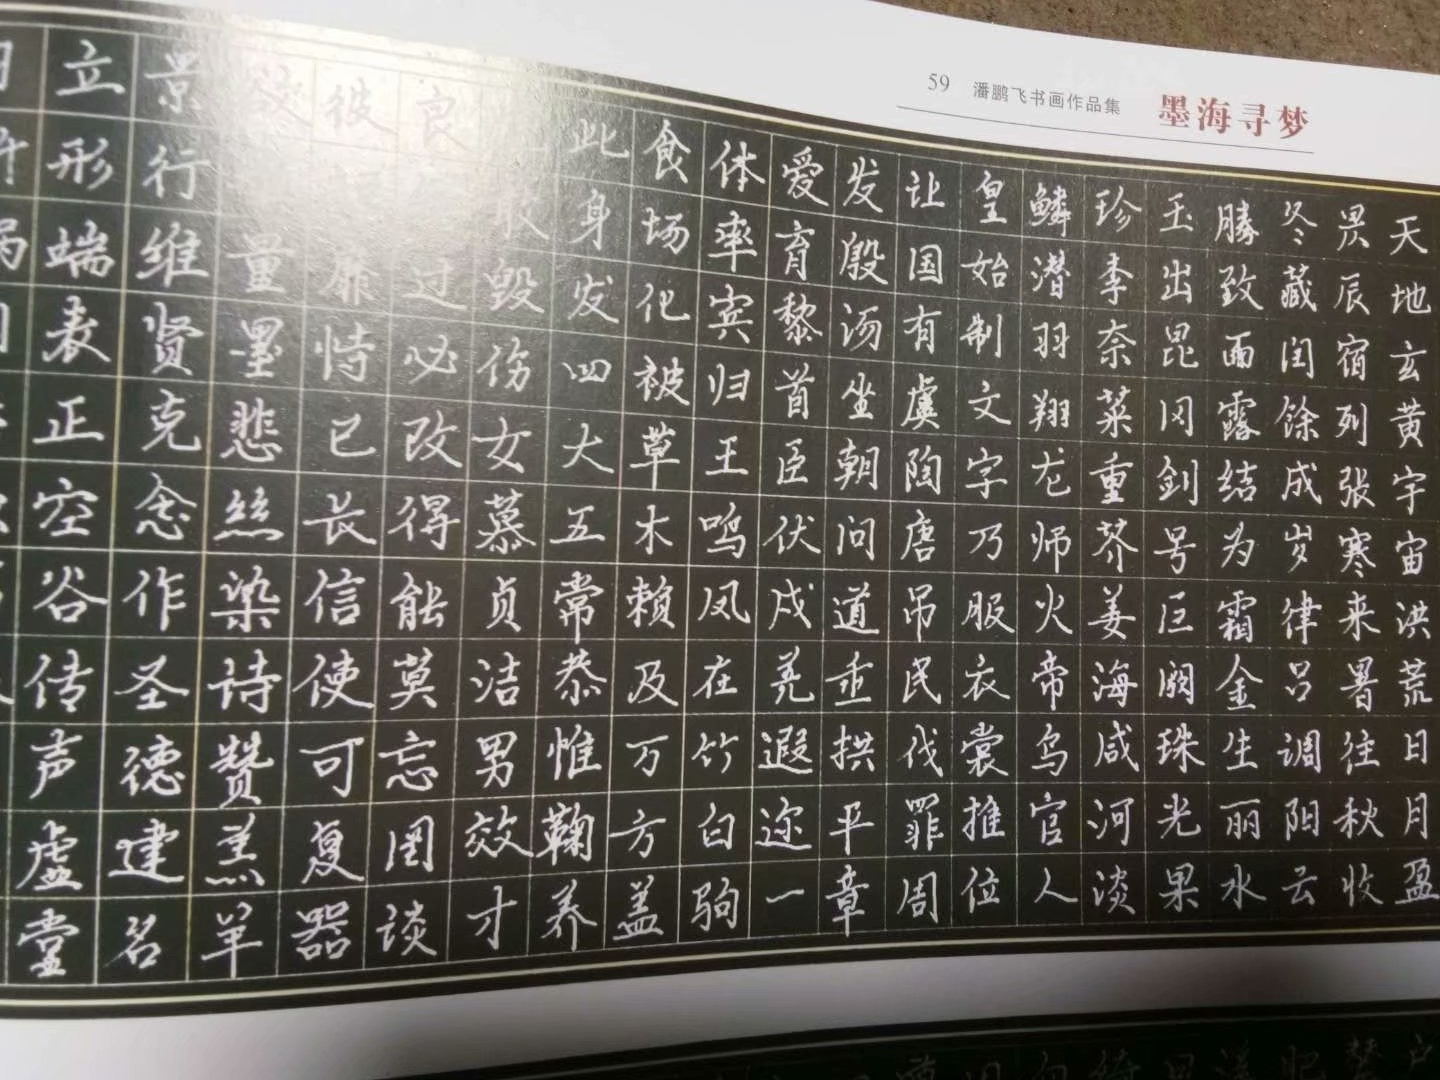 59 潘鹏飞书画作品集 墨海寻梦
天地玄黄宇宙洪荒日月盈
昃辰宿列张寒来暑往秋收
冬藏闰馀成岁律吕调阳云
腾致雨露结为霜金生丽水
玉出昆冈剑号巨阙珠光果
珍李奈菜重芥姜海咸河淡
鳞潜羽翔龙师火帝鸟官人
皇始制文字乃服衣裳推位
让国有虞陶唐吊民伐罪周
发殷汤坐朝问道垂拱平章
爱育黎首臣伏戎羌遐迩一
体率宾归王鸣凤在竹白驹
食场化被草木赖及万方盖
此身发四大五常恭惟鞠养
敢毁伤女慕贞洁男效才
良过必改得能莫忘罔谈
彼靡恃已长信使可复器
量墨悲絲染诗赞羔羊
景行维贤克念作圣德建名
立形端表正空谷传声虚堂